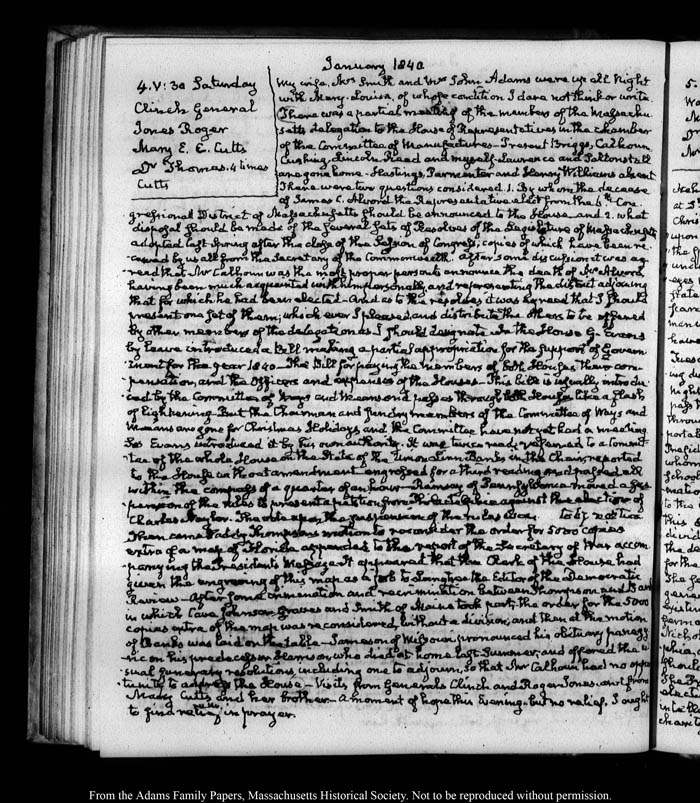 January 1840
4. V: 30 Saturday
Clinch General
Jones Roger
Mary E. E. Cutts
Dr Thomas. 4 times
Cutts
My wife, Mrs Smith and Mrs John Adams were up all Night
with Mary-Louisa, of whose condition I dare not think or write.
There was a partial meeting of the members of the Massachu-
setts delegation to the House of Representatives in the chamber
of the Committee of Manufactures. Present Briggs, Calhoun,
Cushing, Lincoln, Reed and myself. Lawrence and Saltonstall
are gone home. Hastings, Parmenter and Henry Williams absent
There were two questions considered. 1. By whom the decease
of James C. Alvord the Representative elect from the 6th Con-
gressional District of Massachusetts should be announced to the House and 2. what
disposal should be made of the several sets of Resolves of the Legislature of Massachusetts
adopted last Spring after the close of the Session of Congress, copies of which have been re-
ceived by us all from the Secretary of the Commonwealth. After some discussion it was ag-
reed that Mr Calhoun was the most proper person to announce the death of Mr Alvord
having been much acquainted with him personally, and representing the district adjoining
that for which he had been elected. And as to the resolves it was agreed that I should
present one set of them, which ever I pleased, and distribute the others to be offered
by other members of the delegation as I should designate. In the House G. Evans
by leave introduced a Bill making a partial appropriation for the support of Govern-
ment for the year 1840. The Bill for paying the members of both Houses their com-
pensation, and the Officers and expenses of the Houses. This bill is usually introdu-
ced by the Committee of Ways and Means and passes through both Houses like a flash
of lightening. But the Chairman and sundry members of the Committee of Ways and
Means are gone for Christmas Holidays, and the Committee have not yet had a meeting
So Evans introduced it by his own authority. It was twice read, referred to a Commit-
tee of the whole House on the State of the Union, Linn Banks in the Chair, reported
to the House without amendment engrossed for a third reading and passed all
within the compass of a quarter of an hour. Ramsay of Pennsylvania moved a sus-
pension of the rules to present a petition from Philadelphia against the election of
Charles Naylor. The vote upon the suspension of the rules was to 67. no
Then came Waddy Thompson's motion to reconsider the order for 5000 copies
extra of a map of Florida appended to the report of the Secretary of War accom-
panying the President's Message. It appeared that the Clerk of the House had
given the engraving of this map as a job to Langtree the Editor of the Democratic
Review. After some crimination and recrimination between Thompson and
in which Cave Johnson, Graves and Smith of Maine took part, the order for the 5000
copies extra of the map was reconsidered, without a division, and then at the motion
of Banks was laid on the table. Jameson of Missouri pronounced his obituary panegy-
ric on his predecessor Harrison, who died at home last Summer, and offered the u-
sual funerary resolutions, including one to adjourn. So that Mr Calhoun had no oppor-
tunity to address the House. Visits from Generals Clinch and Roger Jones. and from
Mary Cutts and her brother. A moment of hope this Evening. but no relief. I ought
to find relief in prayer.
From the Adams Family Papers, Massachusetts Historical Society. Not to be reproduced without permission.